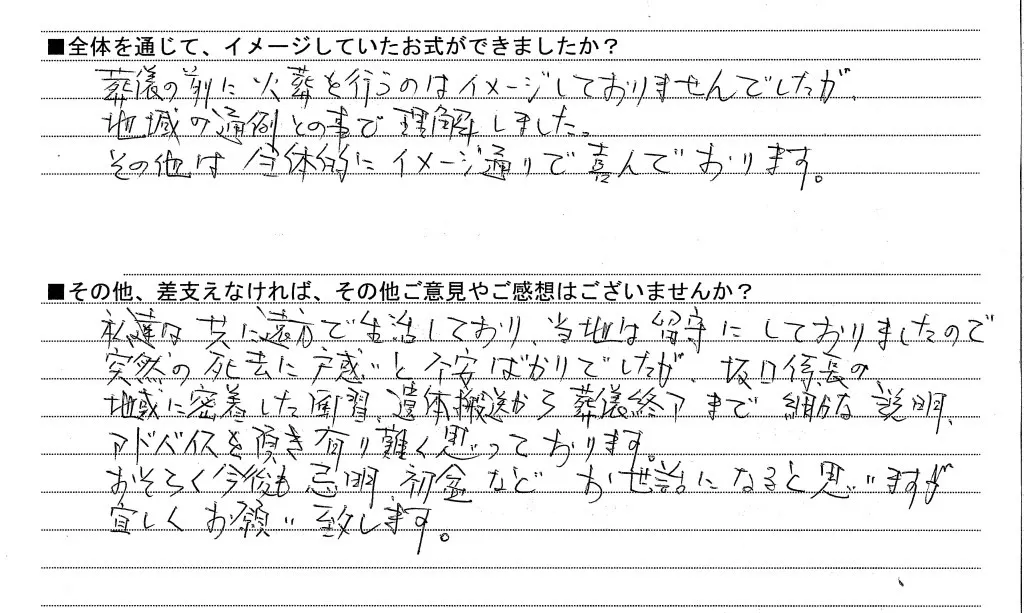 ■全体を通じて、イメージしていたお式ができましたか？
葬儀の前に火葬を行うのはイメージしておりませんでしたが、
地域の通例との事で理解しました。
その他は全体的にイメージ通りで喜んでおります。
■その他、差支えなければ、その他ご意見やご感想はございませんか？
私達は共に遠方で生活しており、当地は留守にしておりましたので
突然の死去に戸惑いと不安ばかりでしたが、坂口係長の
地域に密着した風習、遺体搬送から葬儀終了まで細かな説明、
アドバイスを頂き有り難く思っております。
おそらく今後も忌明、初盆などお世話になると思いますが
宜しくお願い致します。